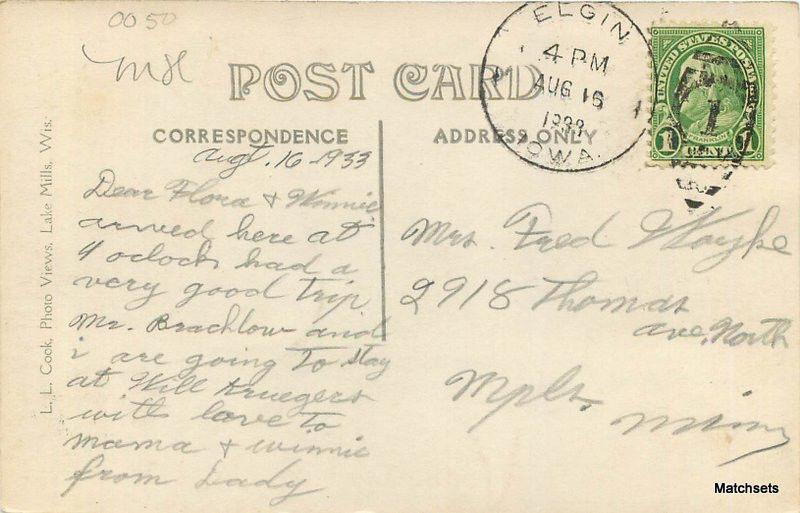 0050
POST CARD
CORRESPONDENCE
ADDRESS ONLY
ELGIN
4 PM
AUG 16
1933
IOWA
UNITED STATES POSTAGE
FRANKLIN
1 CENT 1
1
Augt. 16-1933
Dear Flora & Winnie
arived here at
4 oclock had a
very good trip
Mr. Brachlow and
i are going to stay
at Will Kruegers
with love to
mama & winnie
from Lady
Mrs. Fred Woyke
2918 Thomas
ave. North
Mpls.
Minn
L. L. Cook, Photo Views, Lake Mills, Wis.
Matchsets